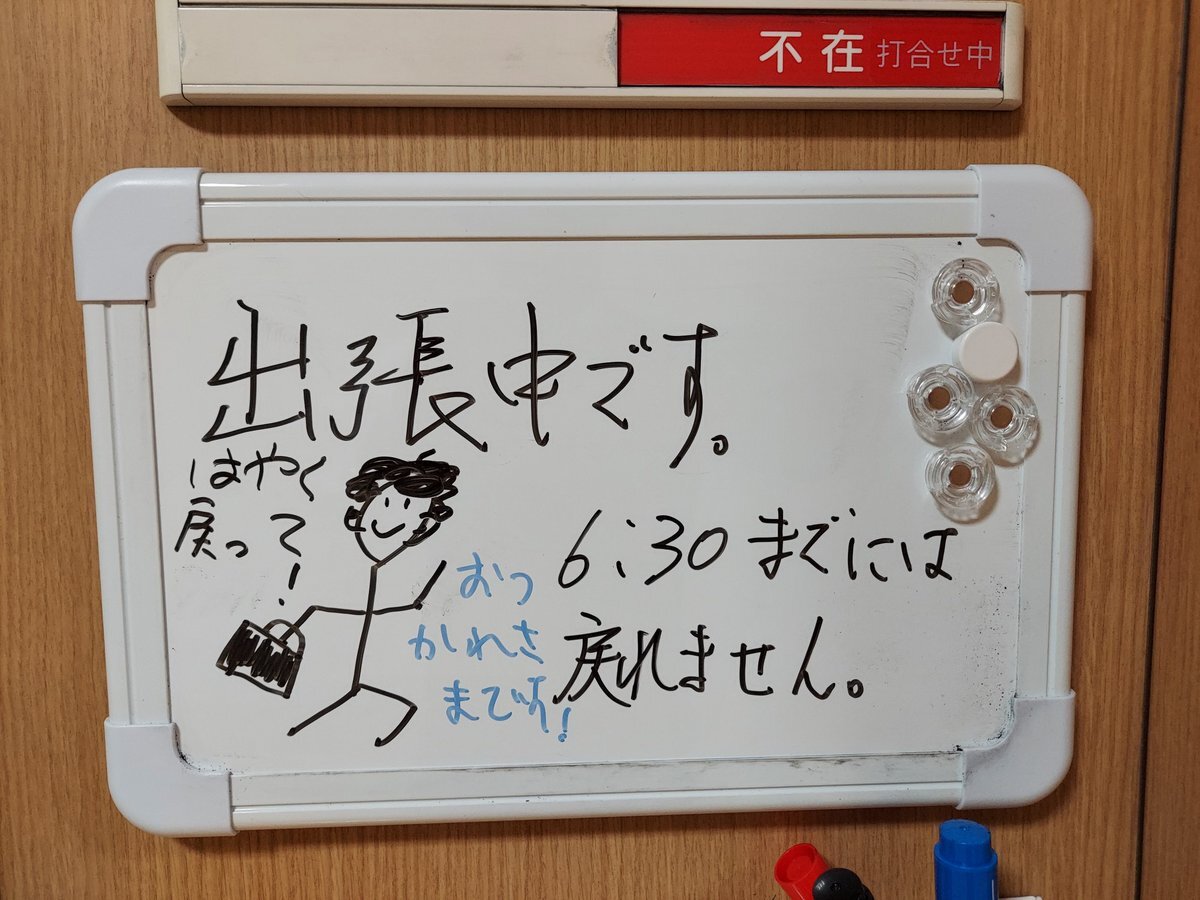 不在 打合せ中
出張中です。
はやく
戻って
!
6:30までには
戻れません。
おつ
かれさ
まです!